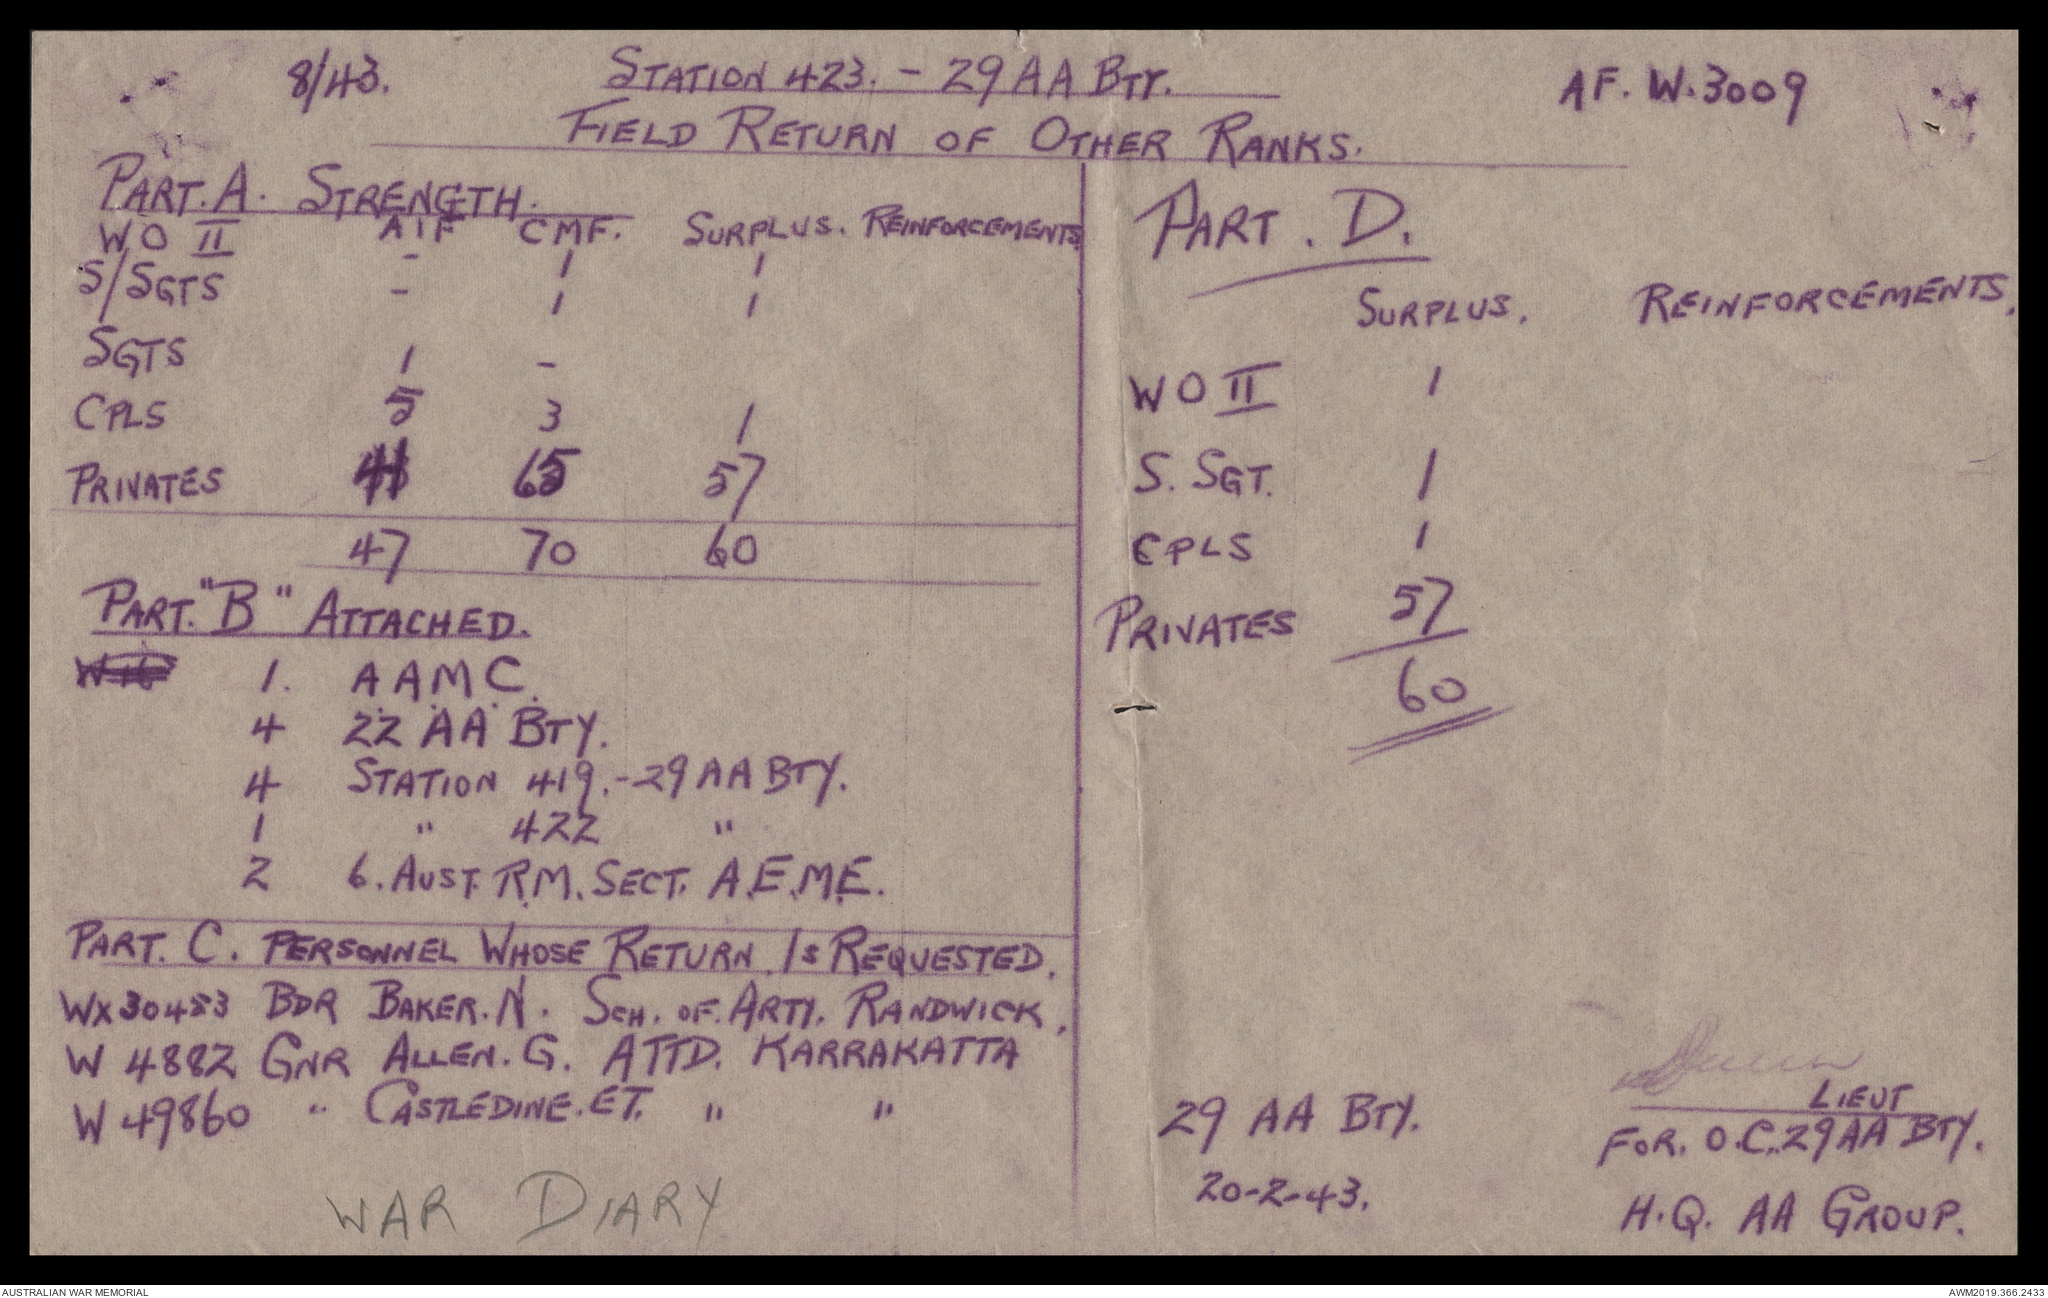 8/43. STATION 423. - 29 AA BTY. AF. W. 3009
FIELD RETURN OF OTHER RANKS.
PART. A. STRENGTH.
AIF CMF. SURPLUS. REINFORCEMENTS
WO II - 1 1
S/SGTS - 1 1
SGTS 1 -
CPLS 5 3 1
PRIVATES 41 65 57
47 70 60
PART. "B" ATTACHED.
1. A.A.M.C.
4 22 AA BTY.
4 STATION 419. - 29 AA BTY.
1 " 422 "
2 6. AUST. R.M. SECT. A.E.M.E.
PART. C. PERSONNEL WHOSE RETURN IS REQUESTED.
WX30453 BDR BAKER. N. SCH. OF. ARTY. RANDWICK.
W 4882 GNR ALLEN. G. ATTD. KARRAKATTA
W 49860 " CASTLEDINE. E.T. " "
WAR DIARY
PART. D.
SURPLUS. REINFORCEMENTS.
WO II 1
S. SGT. 1
CPLS 1
PRIVATES 57
60
29 AA BTY.
20-2-43.
LIEUT
FOR. O.C. 29 AA BTY.
H.Q. AA GROUP.
AUSTRALIAN WAR MEMORIAL
AWM2019.366.2433